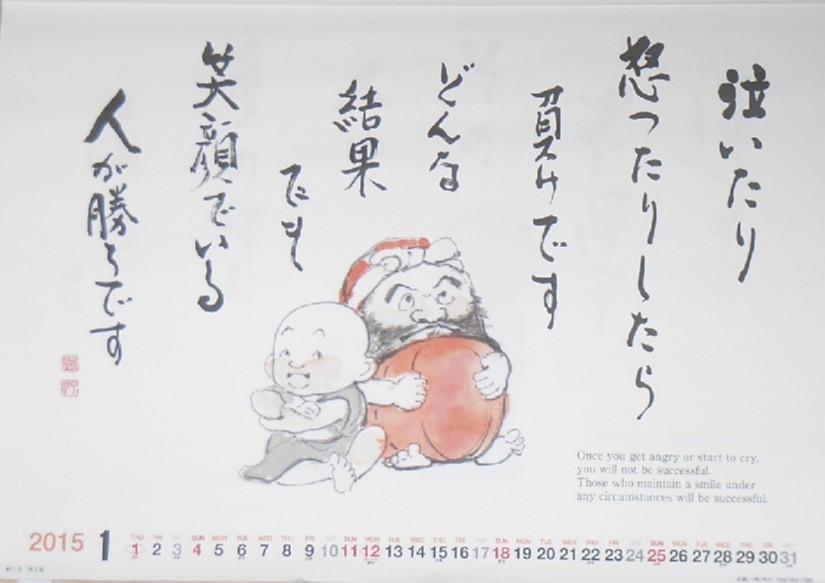 泣いたり
怒ったりしたら
負けです
どんな
結果
でも
笑顔でいる
人が勝ちです
Once you get angry or start to cry,
you will not be successful.
Those who maintain a smile under
any circumstances will be successful.
2015 1
THU FRI SAT SUN MON TUE WED THU FRI SAT SUN MON TUE WED THU FRI SAT SUN MON TUE WED THU FRI SAT SUN MON TUE WED THU FRI SAT
1 2 3 4 5 6 7 8 9 10 11 12 13 14 15 16 17 18 19 20 21 22 23 24 25 26 27 28 29 30 31